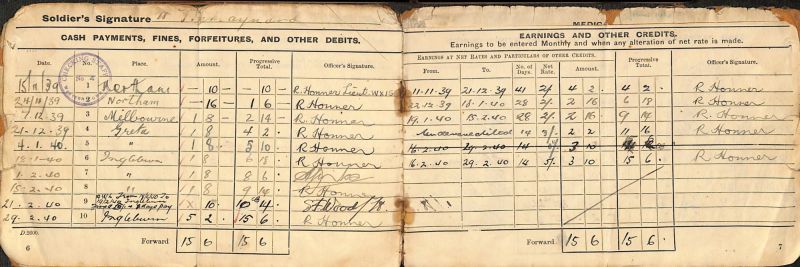 Soldier's Signature
CASH PAYMENTS, FINES, FORFEITURES, AND OTHER DEBITS.
Date. No. Place. Amount. Progressive Total. Officer's Signature.
15/11/39 1 Northam - 10 - - 10 - R. Honner Lieut WX15
24/11/39 2 Northam - 16 - 1 6 - R Honner
7.12.39 3 Melbourne 1 8 - 2 14 - R Honner
21.12.39 4 Greta 1 8 4 2 R Honner
4.1.40. 5 " 1 8 5 10 R Honner
18.1.40 6 Ingleburn 1 8 6 18 R Honner
1.2.40 7 " 1 8 8 6
15.2.40 8 " 1 8 9 14 R Honner
21.2.40 9 Ingleburn 10 10 4 Wood
29.2.40 10 Ingleburn 5 2 15 6 R Honner
D.2600. Forward 15 6 15 6
6
MEDICA
EARNINGS AND OTHER CREDITS.
Earnings to be entered Monthly and when any alteration of net rate is made.
EARNINGS AT NET RATES AND PARTICULARS OF OTHER CREDITS.
From. To. No. of Days. Net Rate. Amount. Progressive Total. Officer's Signature.
11-11-39 21-12-39 41 2/- 4 2 4 2 R Honner
22.12.39 18.1.40 28 2/- 2 16 6 18 R Honner
19.1.40 15.2.40 28 2/- 2 16 9 14 R Honner
14 3/- 2 2 11 16 R Honner
16.2.40 29.2.40 14 5/- 3 10
16.2.40 29.2.40 14 5/- 3 10 15 6 R Honner
Forward 15 6 15 6
7